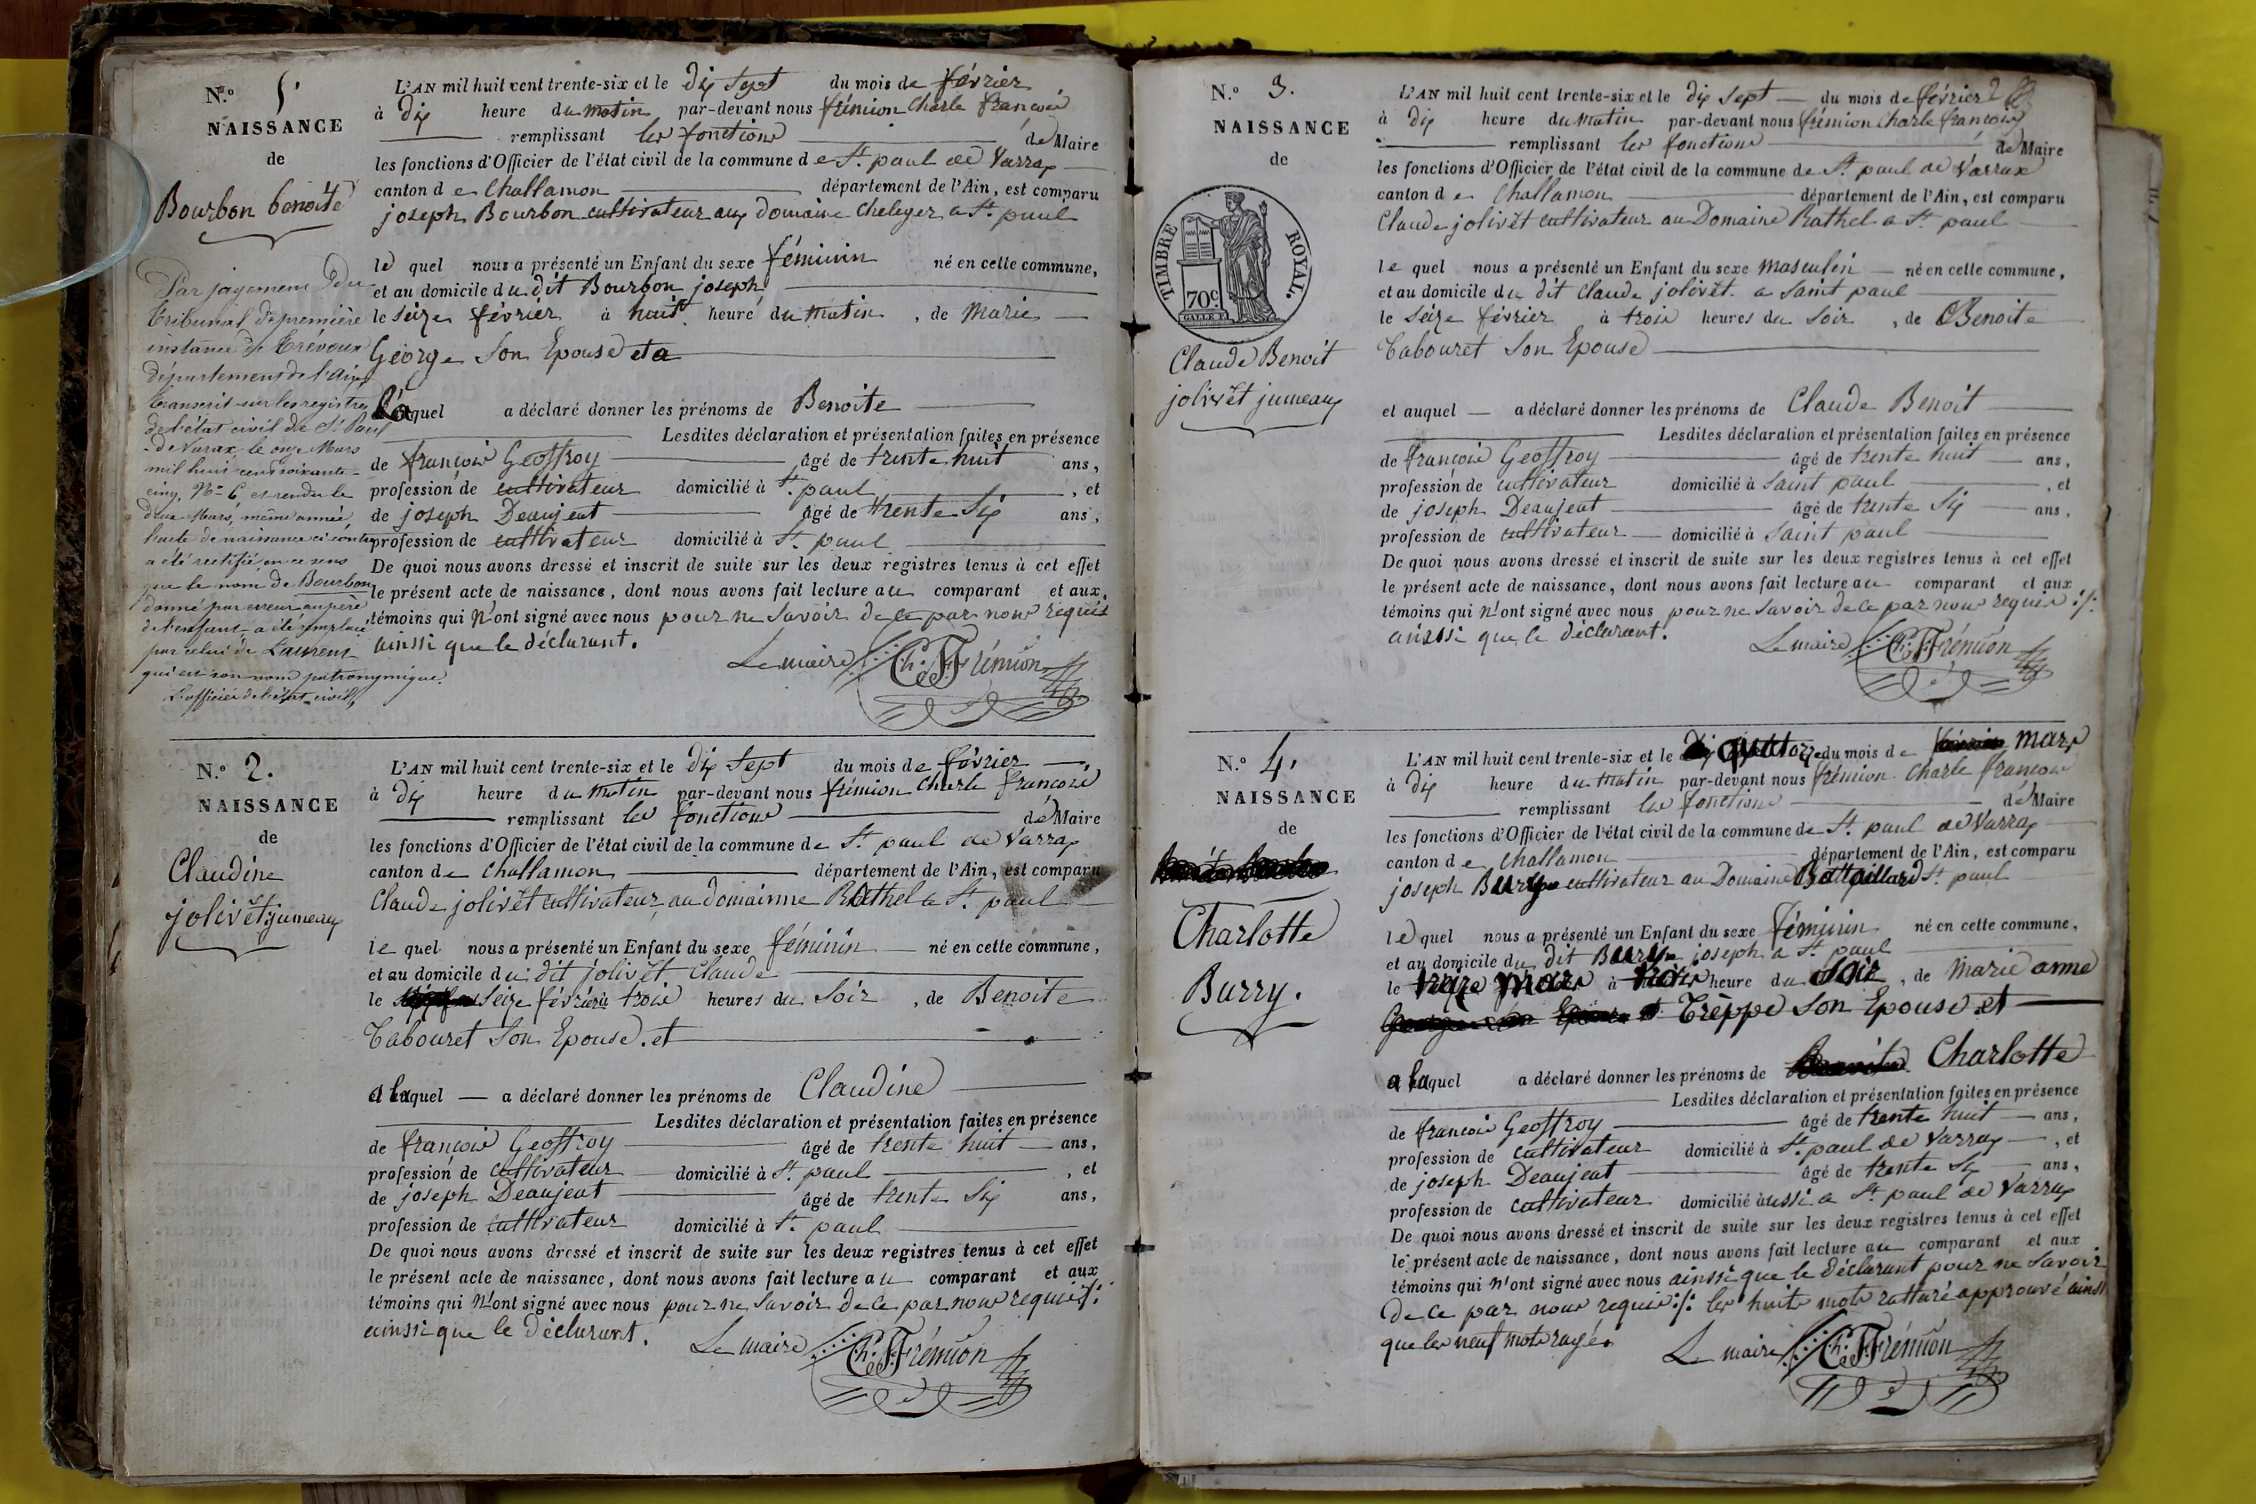 N.o 1.
NAISSANCE
de
Bourbon benoite
Par jugement du
tribunal de première
instance de Trevoux
département de l'Ain,
transcrit sur les registres
de l'état civil de St Paul
de Varax, le onze Mars
mil huit cent soixante-
cinq, No 6 et rendu le
deux Mars, même année,
l'acte de naissance ci-contre
a été rectifié en ce sens
que le nom de Bourbon
donné par erreur au père
de l'enfant a été remplacé
par celui de Laurent
qui est son nom patronymique.
L'officier de l'état-civil,
L'AN mil huit cent trente-six et le dix sept du mois de février
à dix heure du matin par-devant nous frémion Charle françois
remplissant les fonctions de Maire
les fonctions d'Officier de l'état civil de la commune de St. paul de Varrax
canton de Challamon département de l'Ain, est comparu
joseph Bourbon cultivateur aux domaine cheleger a St. paul
le quel nous a présenté un Enfant du sexe féminin né en cette commune,
et au domicile du dit Bourbon joseph
le seize février à huit heure du matin, de Marie
George Son Epouse et a
la quel a déclaré donner les prénoms de Benoite
Lesdites déclaration et présentation faites en présence
de françois Geoffroy âgé de trente huit ans,
profession de cultivateur domicilié à St. paul, et
de joseph Deaujeat âgé de trente Six ans,
profession de cultivateur domicilié à St. paul
De quoi nous avons dressé et inscrit de suite sur les deux registres tenus à cet effet
le présent acte de naissance, dont nous avons fait lecture au comparant et aux
témoins qui n'ont signé avec nous pour ne savoir de ce par nous requis
ainssi que le déclarant.
Le maire Ch. F. Frémion
N.o 2.
NAISSANCE
de
Claudine
jolivèt jumeaux
L'AN mil huit cent trente-six et le dix sept du mois de février
à dix heure du matin par-devant nous frémion Charle françois
remplissant les fonctions de Maire
les fonctions d'Officier de l'état civil de la commune de St. paul de Varrax
canton de Challamon département de l'Ain, est comparu
Claude jolivèt cultivateur au domainne Rathel a St. paul
le quel nous a présenté un Enfant du sexe féminin né en cette commune,
et au domicile du dit jolivèt Claude
le seize février à trois heures du Soir, de Benoite
Tabouret Son Epouse. et
a laquel a déclaré donner les prénoms de Claudine
Lesdites déclaration et présentation faites en présence
de françois Geoffroy âgé de trente huit ans,
profession de cultivateur domicilié à St. paul, et
de joseph Deaujeat âgé de trente Six ans,
profession de cultivateur domicilié à St. paul
De quoi nous avons dressé et inscrit de suite sur les deux registres tenus à cet effet
le présent acte de naissance, dont nous avons fait lecture au comparant et aux
témoins qui n'ont signé avec nous pour ne savoir de ce par nous requis
ainssi que le déclarant.
Le maire Ch. F. Frémion
N.o 3.
NAISSANCE
de
TIMBRE ROYAL.
70c
Claude Benoit
jolivèt jumeaux
L'AN mil huit cent trente-six et le dix sept du mois de février 2
à dix heure du matin par-devant nous frémion Charle françois
remplissant les fonctions de Maire
les fonctions d'Officier de l'état civil de la commune de St. paul de Varrax
canton de Challamon département de l'Ain, est comparu
Claude jolivèt cultivateur au Domaine Rathel a St. paul
le quel nous a présenté un Enfant du sexe masculin né en cette commune,
et au domicile du dit Claude jolivèt. a saint paul
le seize février à trois heures du soir, de Benoite
Tabouret Son Epouse
et auquel a déclaré donner les prénoms de Claude Benoit
Lesdites déclaration et présentation faites en présence
de françois Geoffroy âgé de trente huit ans,
profession de cultivateur domicilié à saint paul, et
de joseph Deaujeat âgé de trente Six ans,
profession de cultivateur domicilié à saint paul
De quoi nous avons dressé et inscrit de suite sur les deux registres tenus à cet effet
le présent acte de naissance, dont nous avons fait lecture au comparant et aux
témoins qui n'ont signé avec nous pour ne savoir de ce par nous requis ./.
ainssi que le déclarant.
Le maire Ch. F. Frémion
N.o 4.
NAISSANCE
de
Charlotte
Burry.
L'AN mil huit cent trente-six et le quatorze du mois de mars
à dix heure du matin par-devant nous frémion Charle françois
remplissant les fonctions de Maire
les fonctions d'Officier de l'état civil de la commune de St. paul de Varrax
canton de Challamon département de l'Ain, est comparu
joseph Burry cultivateur au Domaine Battaillard St. paul
le quel nous a présenté un Enfant du sexe féminin né en cette commune,
et au domicile du dit Burry joseph a St. paul
le treize mars à trois heure du soir, de Marie anne
Trèppe Son Epouse. et
a la quel a déclaré donner les prénoms de Charlotte
Lesdites déclaration et présentation faites en présence
de françois Geoffroy âgé de trente huit ans,
profession de cultivateur domicilié à St. paul de Varrax, et
de joseph Deaujeat âgé de trente Six ans,
profession de cultivateur domicilié aussi a St. paul de Varrax
De quoi nous avons dressé et inscrit de suite sur les deux registres tenus à cet effet
le présent acte de naissance, dont nous avons fait lecture au comparant et aux
témoins qui n'ont signé avec nous ainssi que le déclarant pour ne savoir
de ce par nous requis ./. les huits mots ratturé approuvé ainsi
que les neuf mots rayés
Le maire Ch. F. Frémion